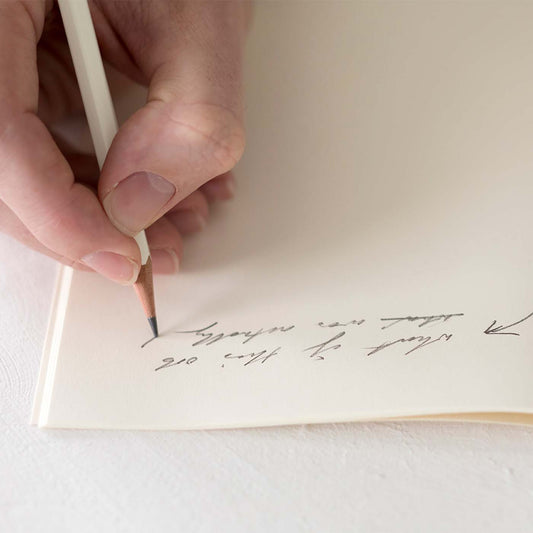 what if this
what was actually